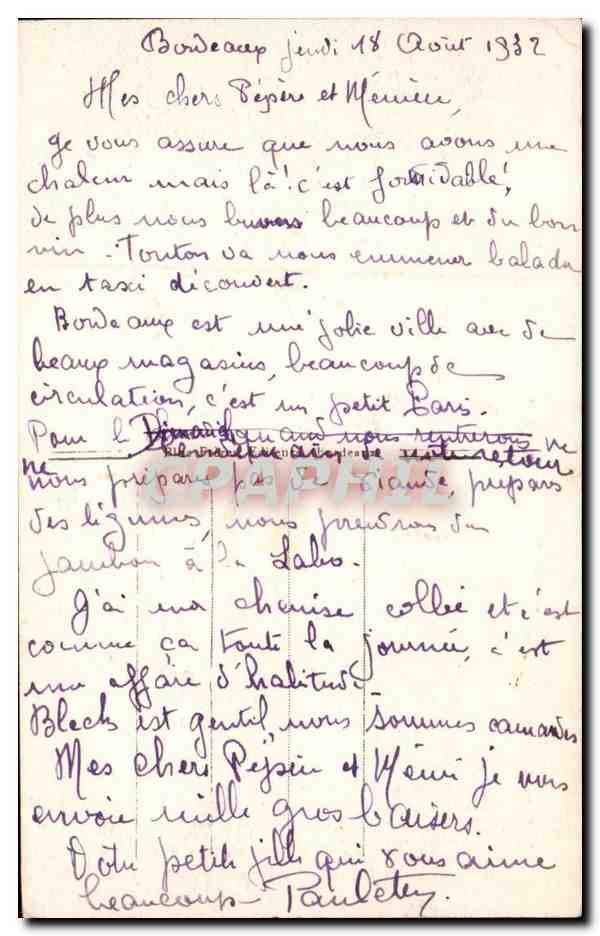 Bordeaux jeudi 18 Août 1932
Mes chers Pépère et Mémère,
Je vous assure que nous avons une
chaleur mais là! c'est formidable!,
de plus nous buvons beaucoup et du bon
vin. Tonton va nous emmener balader
en taxi découvert.
Bordeaux est une jolie ville avec de
beaux magasins, beaucoup de
circulation, c'est un petit Paris.
Pour le Dimanche quand nous rentrerons ne
retour
ne
nous prépare pas de viande, prépare
des légumes, nous prendrons du
jambon à la
CPAPHIL
J'ai ma chemise collée et c'est
comme ça toute la journée, c'est
une affaire d'habitude
Black est gentil, nous sommes camarades
Mes chers Pépère et Mémère je vous
envoie mille gros baisers.
Votre petite fille qui vous aime
beaucoup